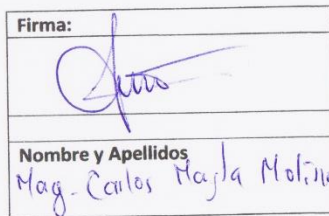 Firma:
Nombre y Apellidos
Mag. Carlos Molina